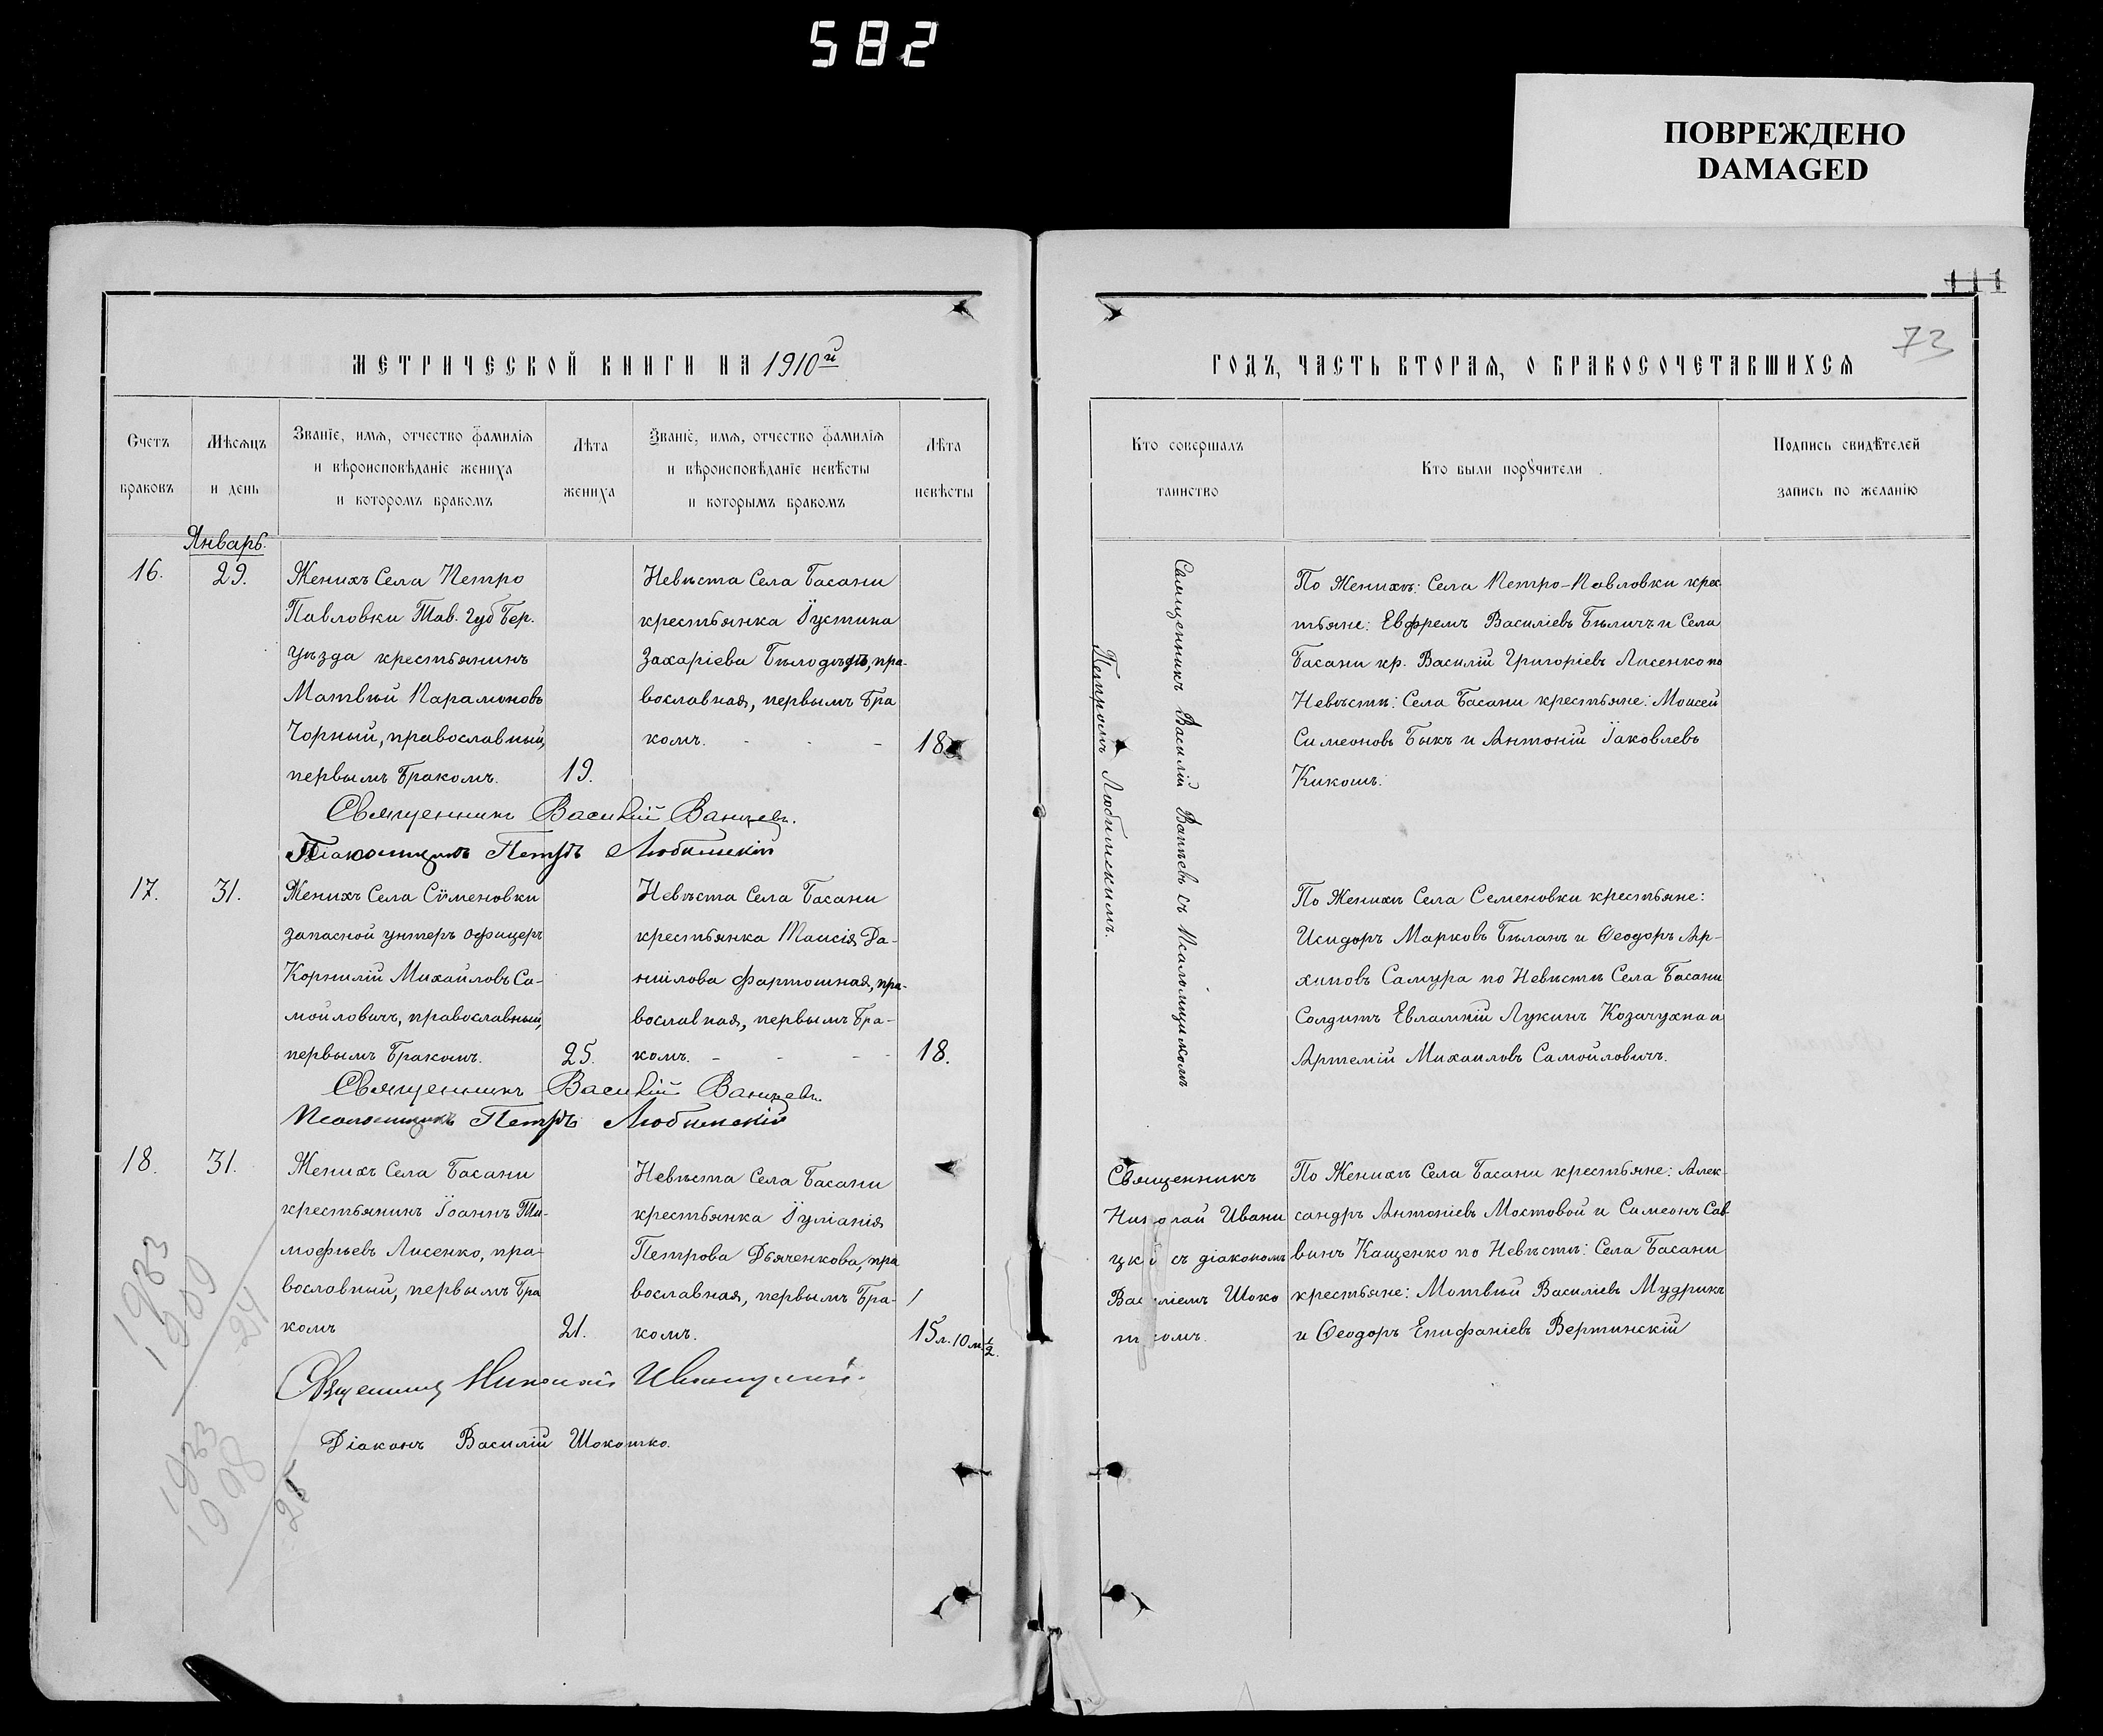 582
ПОВРЕЖДЕНО
DAMAGED
111
73
МЕТРИЧЕСКОЙ КНИГИ НА 1910й
ГОДЪ, ЧАСТЬ ВТОРАЯ, О БРАКОСОЧЕТАВШИХСЯ
Счетъ
браковъ
Мѣсяцъ
и день
Званіе, имя, отчество фамилія
и вѣроисповѣданіе жениха
и которомъ бракомъ
Лѣта
жениха
Званіе, имя, отчество фамилія
и вѣроисповѣданіе невѣсты
и которымъ бракомъ
Лѣта
невѣсты
Кто совершалъ
таинство
Кто были порꙋчители
Подпись свидѣтелей
запись по желанію
Январь.
16.
29.
Женихъ Села Петро
Павловки Тав. губ Бер.
уѣзда крестьянинъ
Матвѣй Парамоновъ
Чорный, православный,
первымъ бракомъ.
19.
Невѣста Села Басани
крестьянка Іустина
Захаріева Бѣлодѣдъ, пра-
вославная, первымъ бра
комъ.
18
Священникъ Василій Ваньевъ.
Псаломщикъ Петръ Любимскій
Священникъ Василій Ваньевъ съ Псаломщикомъ
Петромъ Любимскимъ.
По Женихѣ: Села Петро-Павловки крес
тьяне: Евфремъ Василіевъ Бѣличъ и Села
Басани кр. Василій Григоріевъ Лисенко по
Невѣстѣ: Села Басани крестьяне: Моисей
Симеоновъ Быкъ и Антоній Іаковлевъ
Кикошъ.
17.
31.
Женихъ Села Семеновки
запасной унтеръ офицеръ
Корнилій Михайловъ Са-
мойловичъ, православный,
первымъ бракомъ.
25.
Невѣста Села Басани
крестьянка Таисія Да-
ніилова Фартошная, пра-
вославная, первымъ бра-
комъ.
18.
Священникъ Василій Ваньевъ.
Псаломщикъ Петръ Любимскій
По Женихѣ Села Семеновки крестьяне:
Исидоръ Марковъ Бѣланъ и Ѳеодоръ Ар-
хиповъ Самура по Невѣстѣ Села Басани
Солдатъ Евлампій Лукинъ Козачухна и
Артемій Михаиловъ Самойловичъ.
18.
31.
Женихъ Села Басани
крестьянинъ Іоаннъ Ти-
мофѣевъ Лисенко, пра-
вославный, первымъ бра
комъ
21.
Невѣста Села Басани
крестьянка Іуліанія
Петрова Дьяченкова, пра
вославная, первымъ бра-
комъ.
15 л. 10 м. ½.
Священникъ Николай Иваницкій.
Діаконъ Василій Шокотко.
Священникъ
Николай Ивани
цкій съ діакономъ
Василіемъ Шоко
ткомъ.
По Женихѣ Села Басани крестьяне: Алек-
сандръ Антоніевъ Мостовой и Симеонъ Сав
винъ Кащенко по Невѣстѣ: Села Басани
крестьяне: Матвѣй Василіевъ Мудрикъ
и Ѳеодоръ Епифаніевъ Вертинскій
1933
1909
24
1933
1908
25